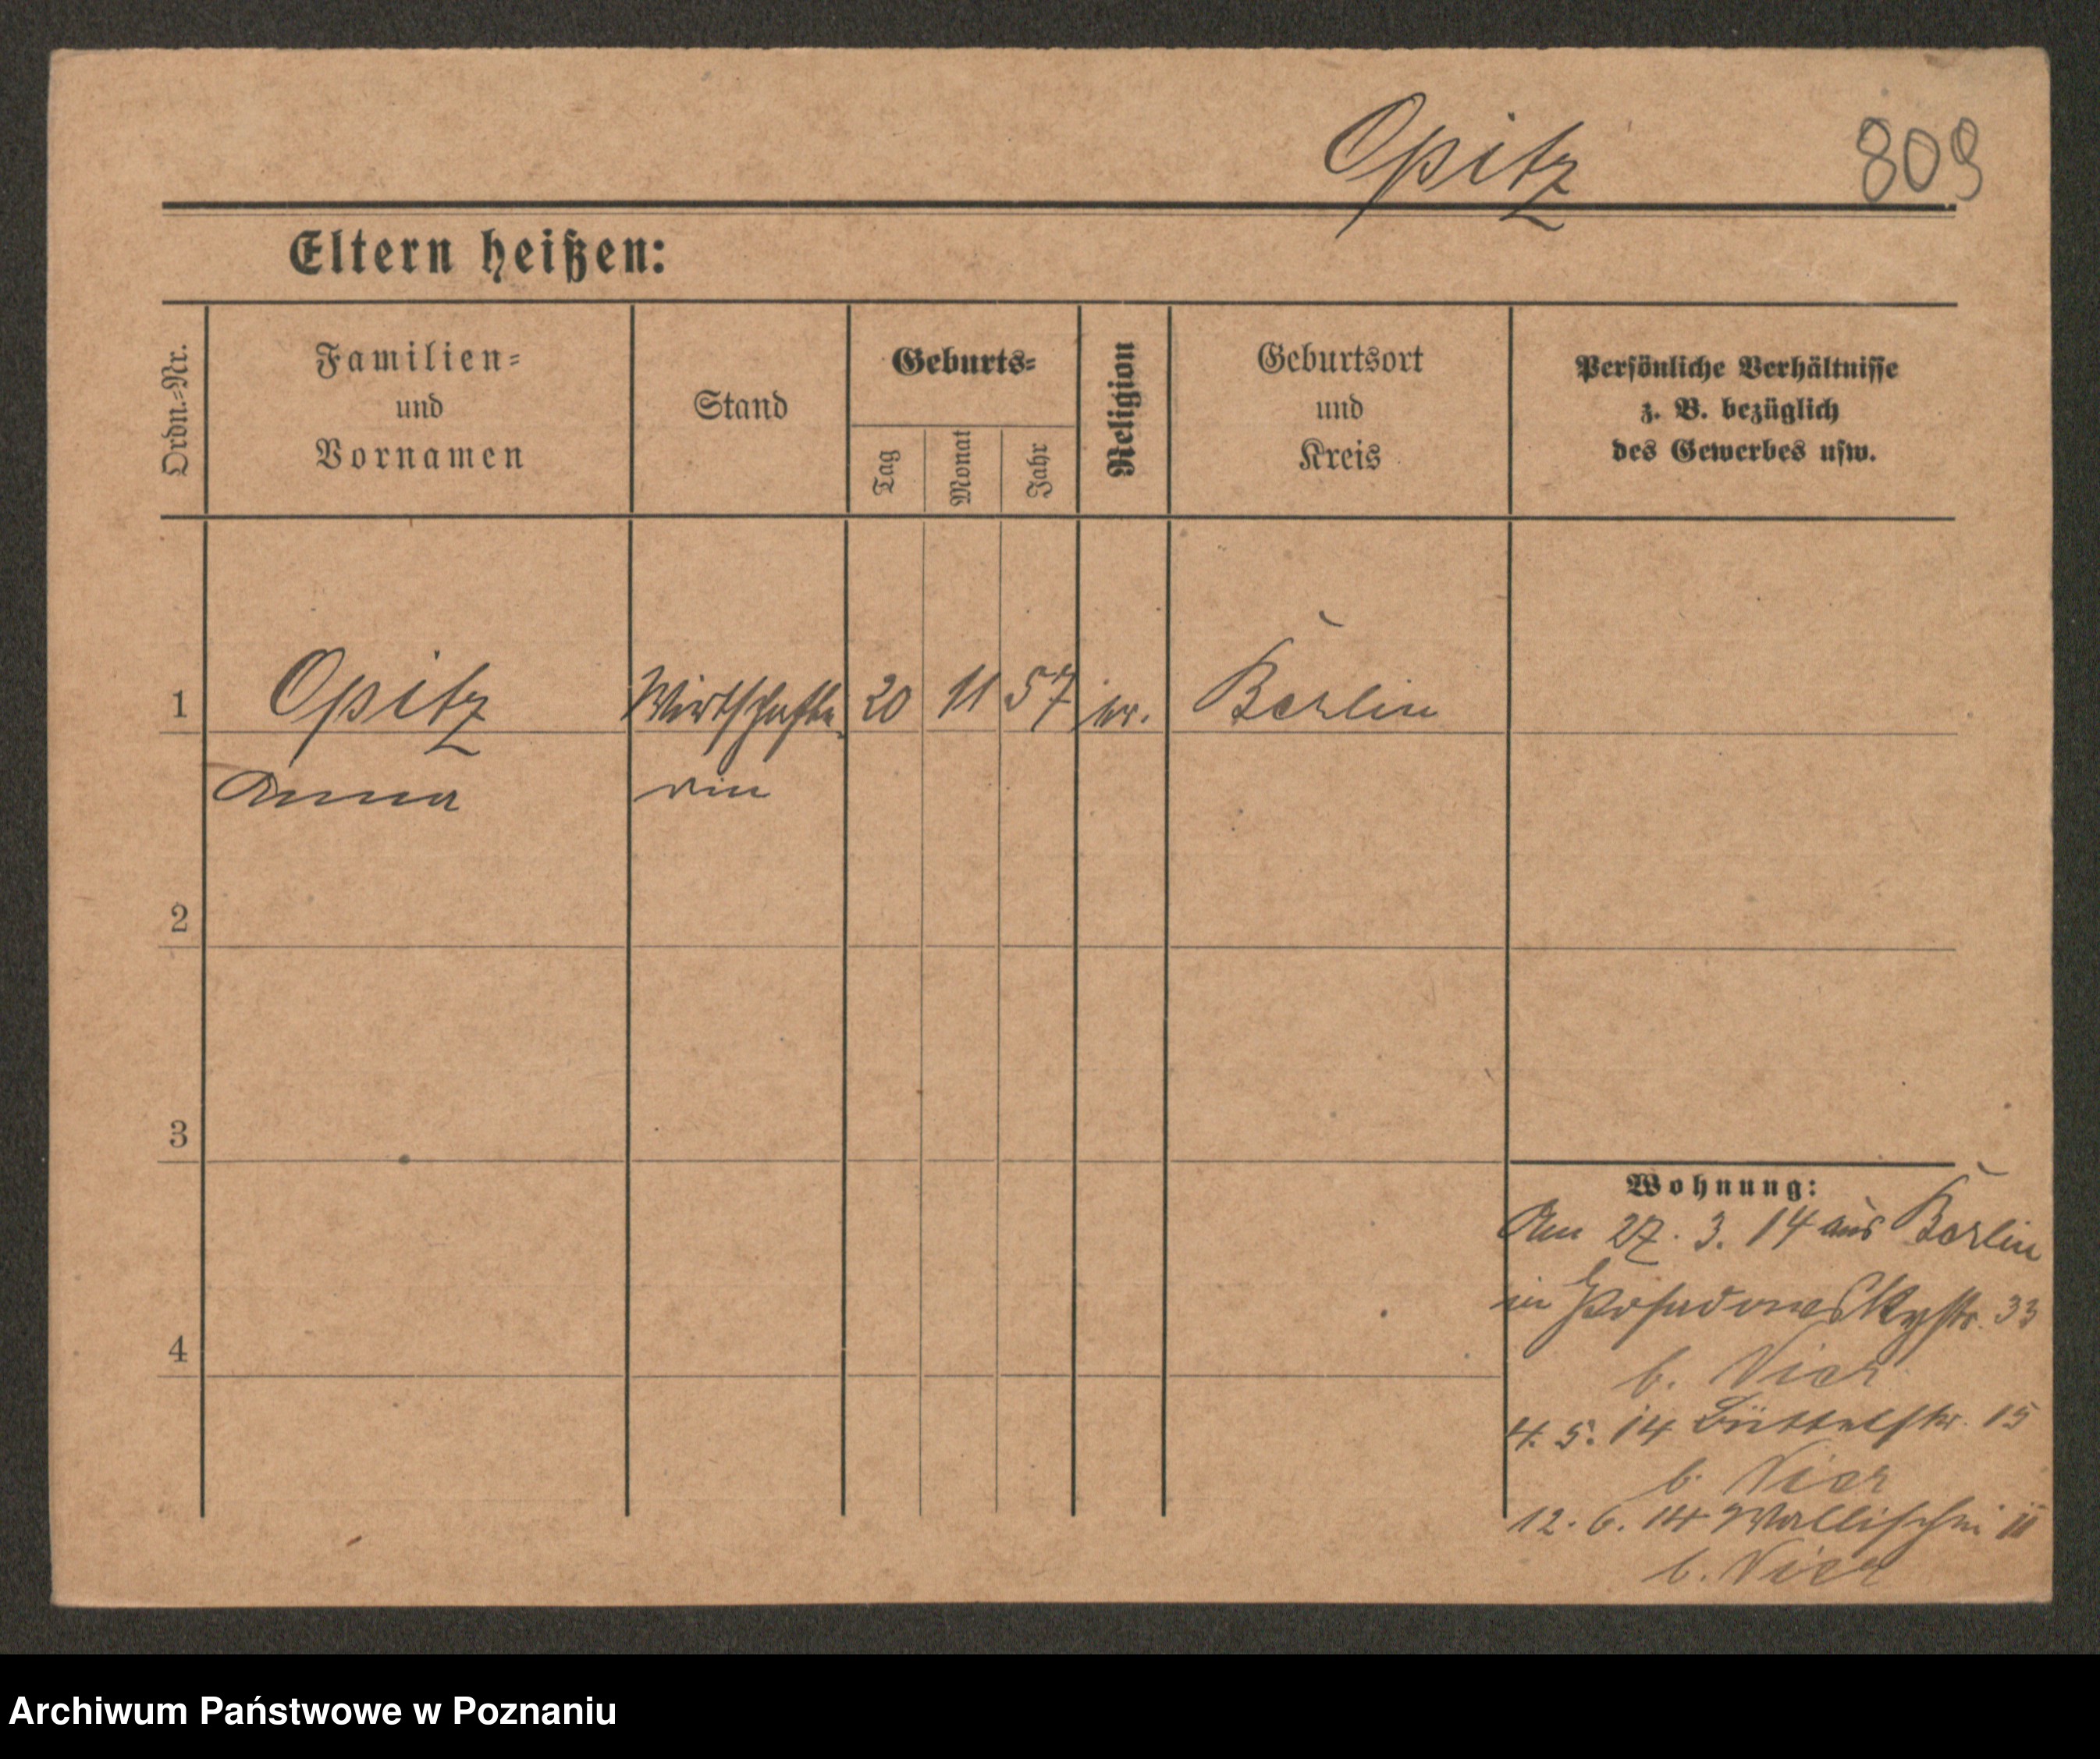 Opitz 809
Eltern heißen:
Ordn.=Nr.
Familien=
und
Vornamen
Stand
Geburts=
Tag
Monat
Jahr
Religion
Geburtsort
und
Kreis
Persönliche Verhältnisse
z. B. bezüglich
des Gewerbes usw.
1 Opitz Wirtschafte 20 11 57 Berlin
Anna rin
2
3
4
Wohnung:
Am 27. 3. 14 aus Berlin
in Posadowskystr. 33
b. Vier
4. 5. 14 Büttelstr. 15
b. Vier
12. 6. 14 Wallischei 11
b. Vier
Archiwum Państwowe w Poznaniu